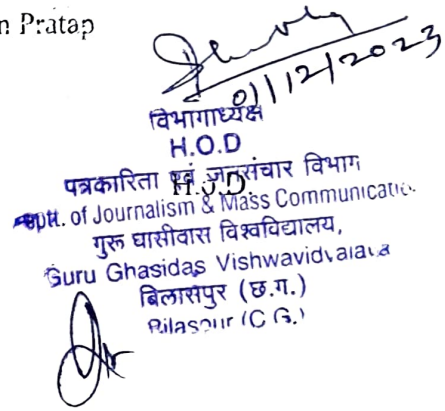 n Pratap
01/12/2023
विभागाध्यक्ष
H.O.D
पत्रकारिता एवं जनसंचार विभाग
H.O.D.
Deptt. of Journalism & Mass Communication
गुरू घासीदास विश्वविद्यालय,
Guru Ghasidas Vishwavidyalaya
बिलासपुर (छ.ग.)
Bilaspur (C.G.)